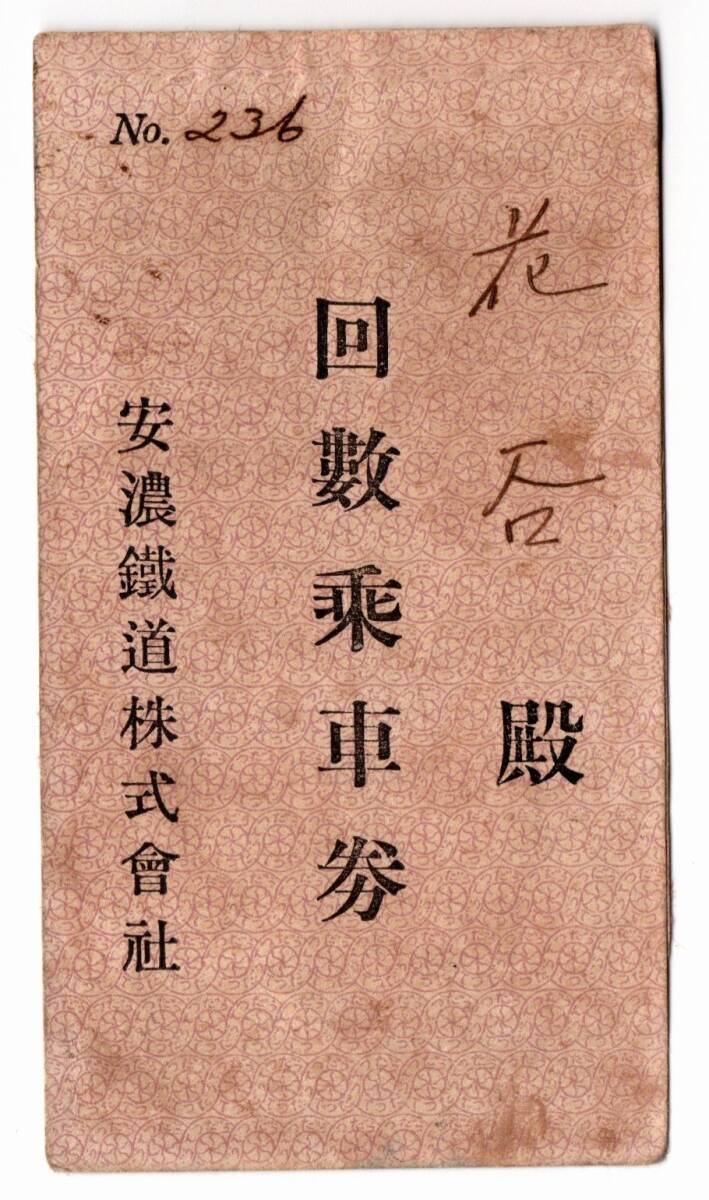 No. 236
花谷殿
回數乘車劵
安濃鐵道株式會社